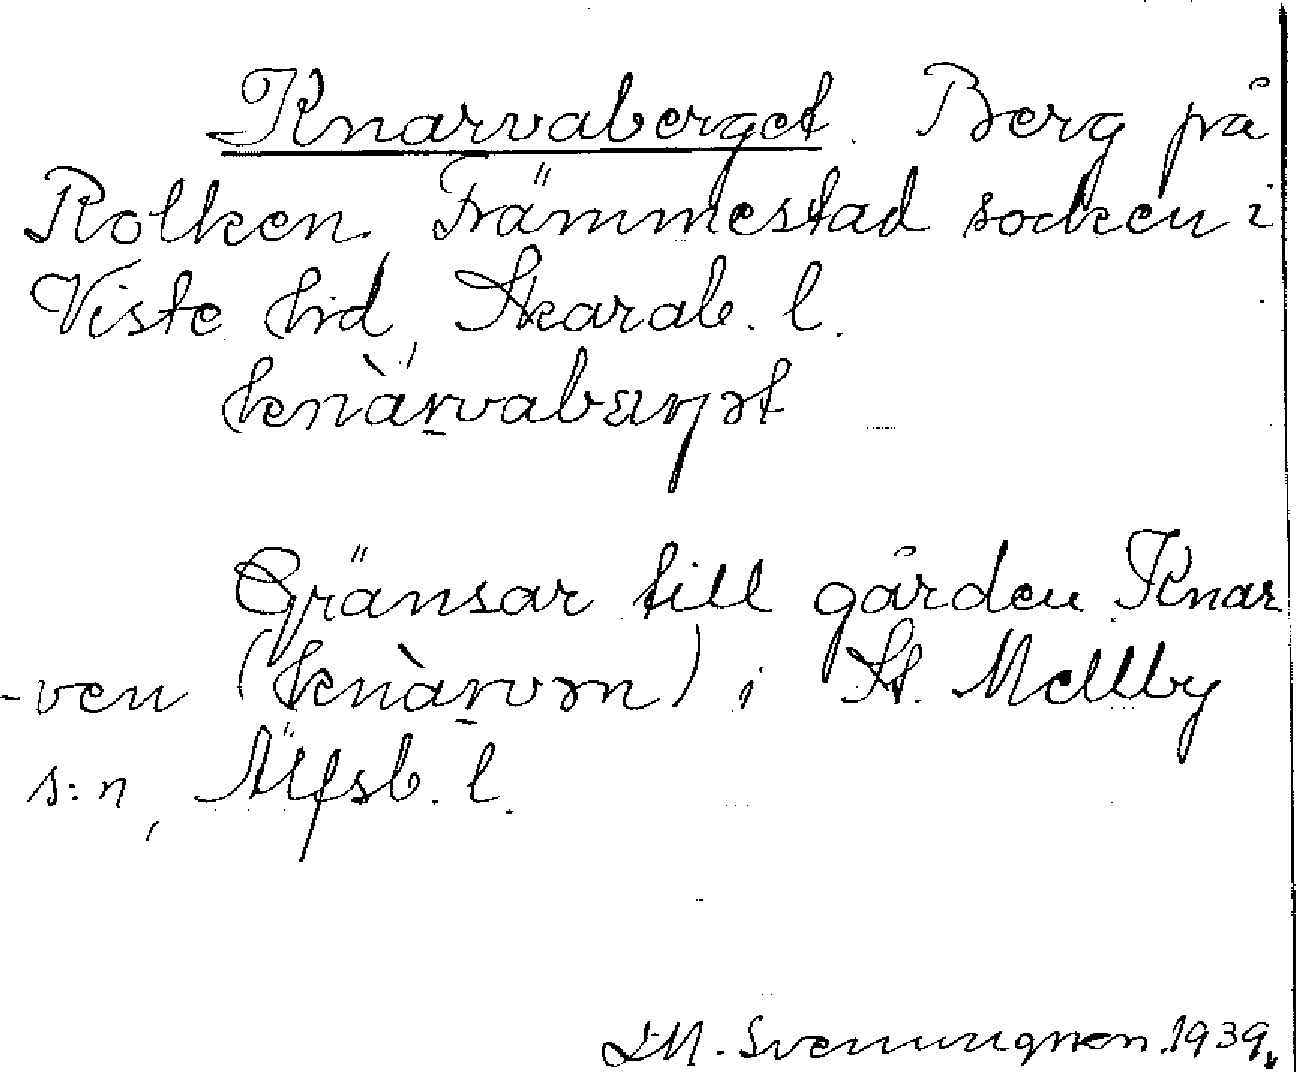 Knarvaberget. Berg på
Rolken. Främmestad socken i
Viste hd, Skarab. l.
Gränsar till gården Knar
-ven (knàrvən) i St. Mellby
s:n, Älfsb. l.
Svenungsson. 1939.